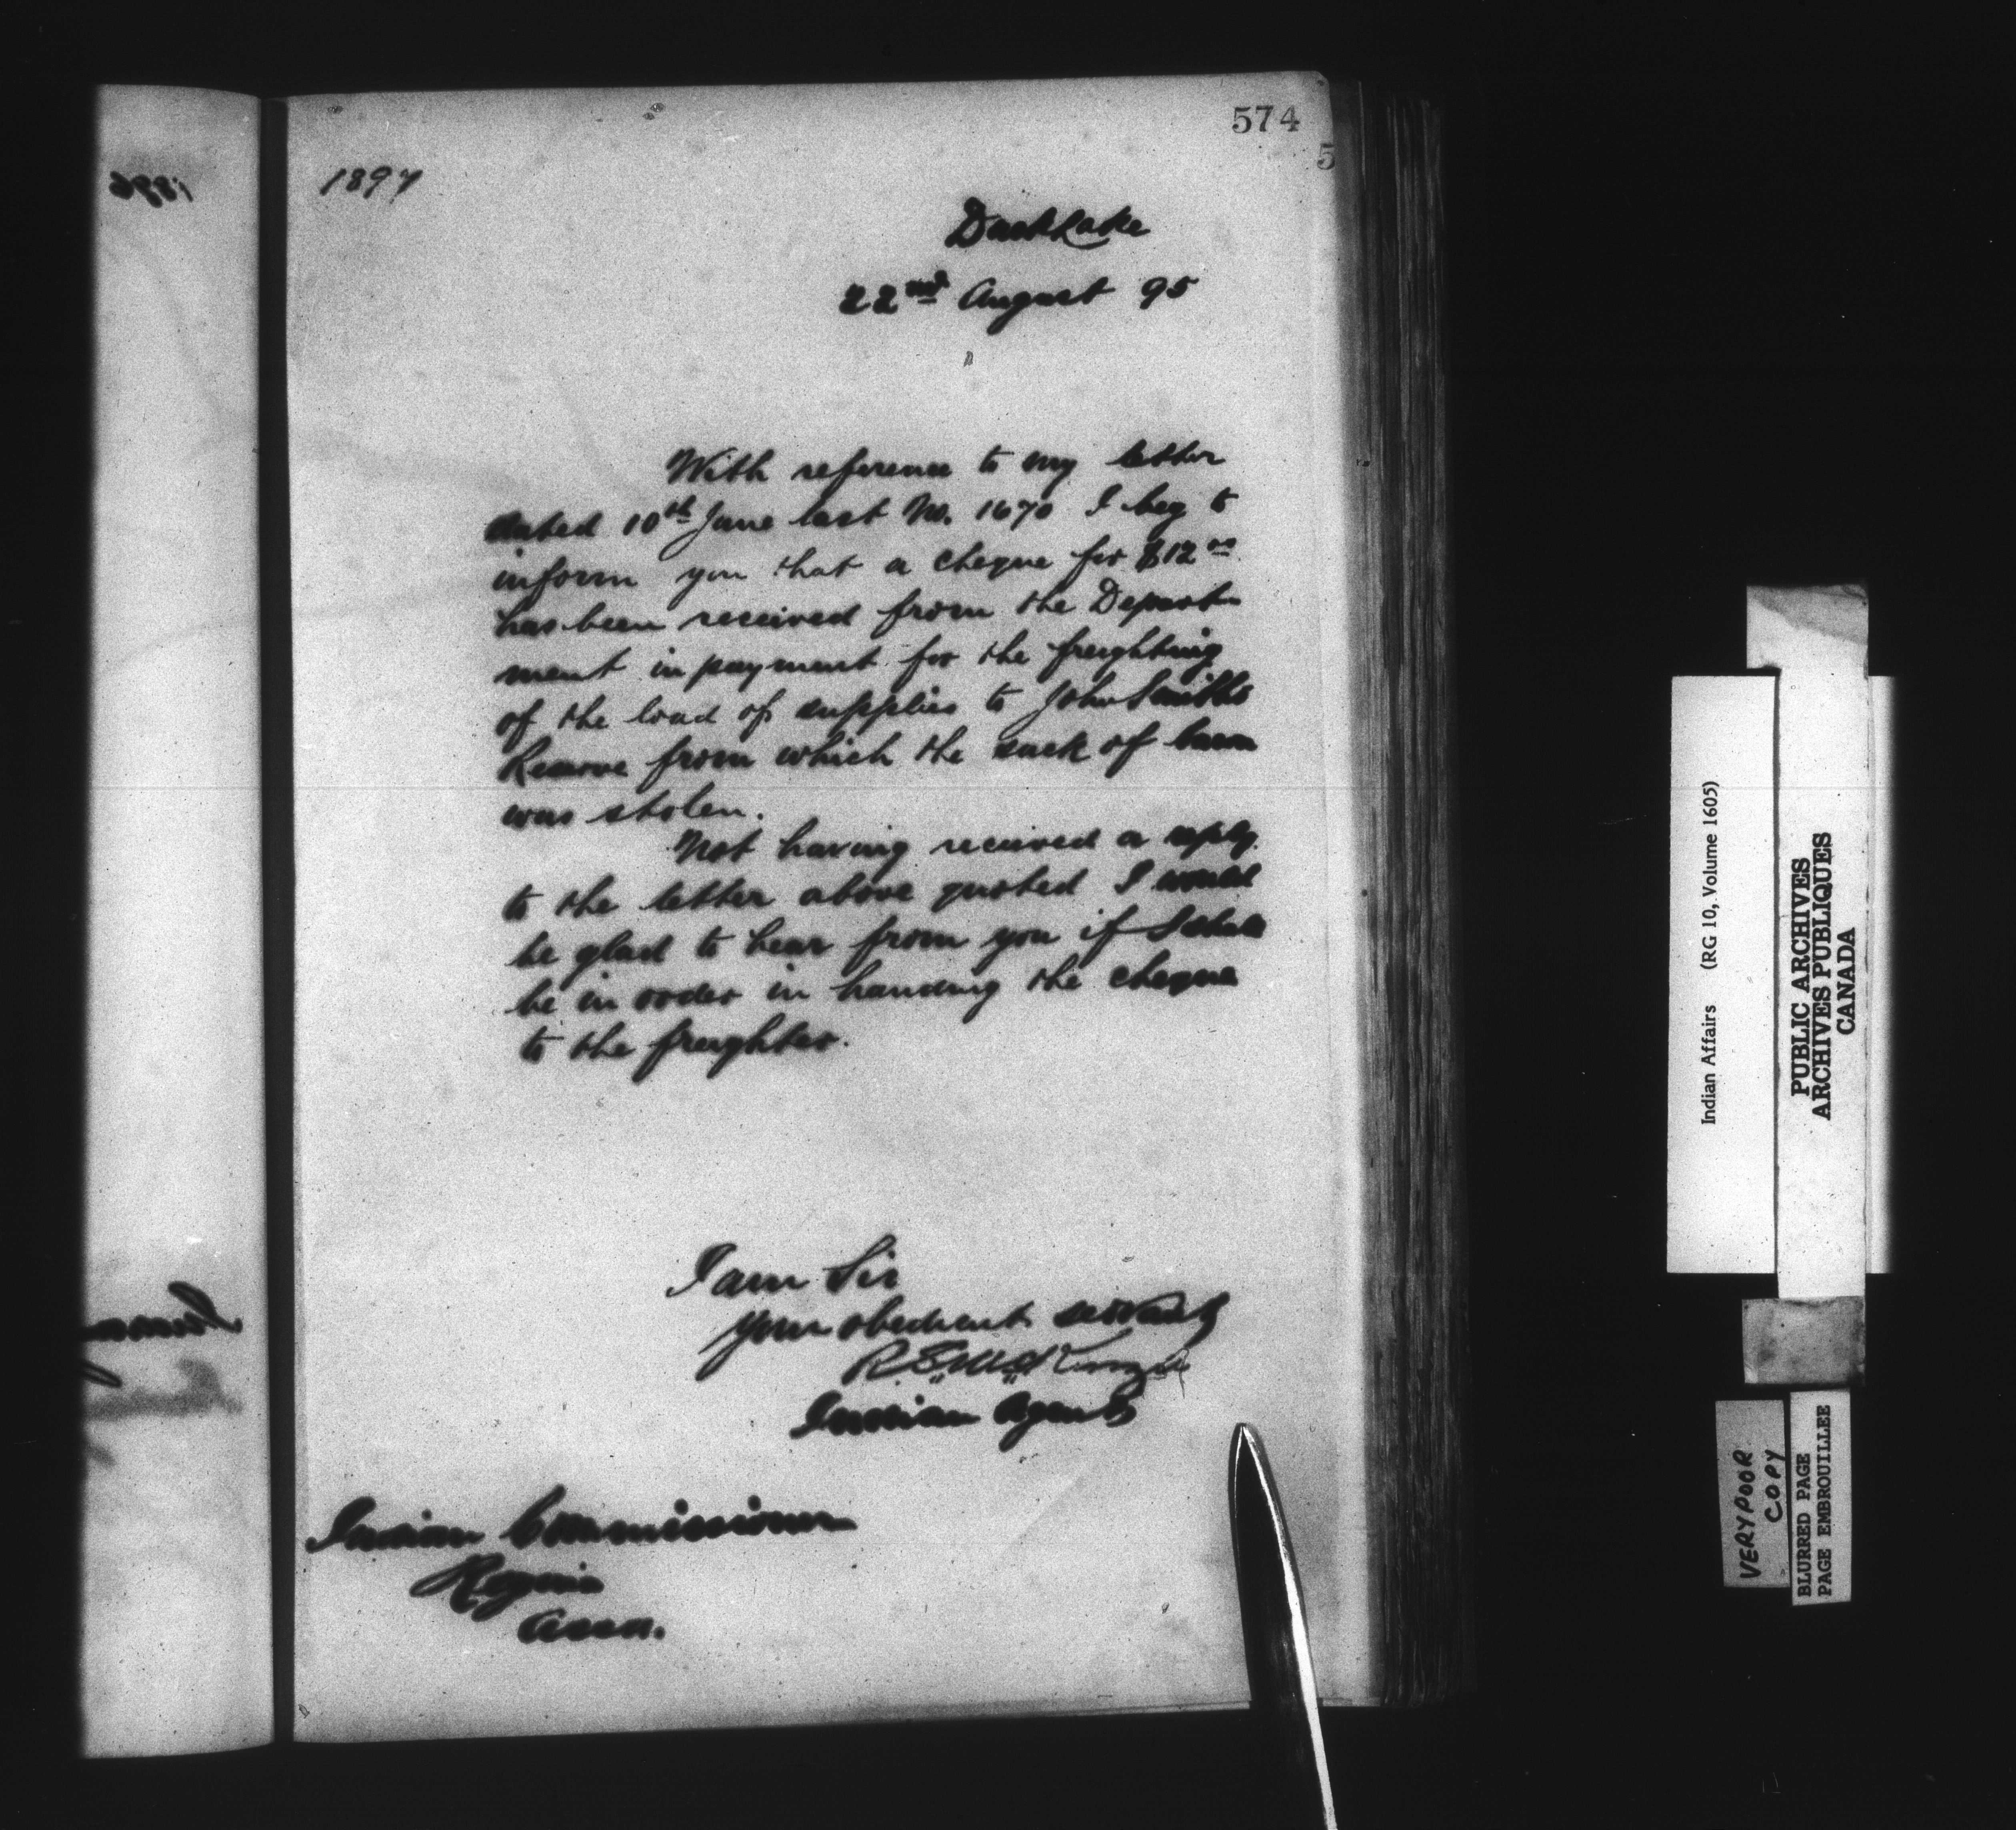 574
5
1897
Duck Lake
22nd August 95
With reference to my letter
dated 10th June last No. 1670 I beg to
inform you that a cheque for $12 00
has been received from the Depart
ment in payment for the freighting
of the load of supplies to John Smiths
Reserve from which the sack of bacon
was stolen.
Not having received a reply
to the letter above quoted I would
be glad to hear from you if I shall
be in order in handing the cheque
to the freighter.
I am Sir
your obedient servant
R.S. McKenzie
Indian Agent
Indian Commissioner
Regina
Assa.
1896
Indian Affairs (RG 10, Volume 1605)
PUBLIC ARCHIVES
ARCHIVES PUBLIQUES
CANADA
VERY POOR
COPY
BLURRED PAGE
PAGE EMBROUILLEE